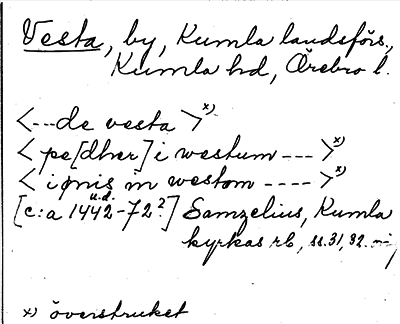 Vesta, by, Kumla landsförs.,
Kumla hd, Örebro l.
<---de vesta>x)
<pe[dher] i westum--->x)
<ignis in westom---->x)
u.d.
[c:a 1442-72?] Samzelius, Kumla
kyrkas rb, ss. 31, 92.
x) överstruket